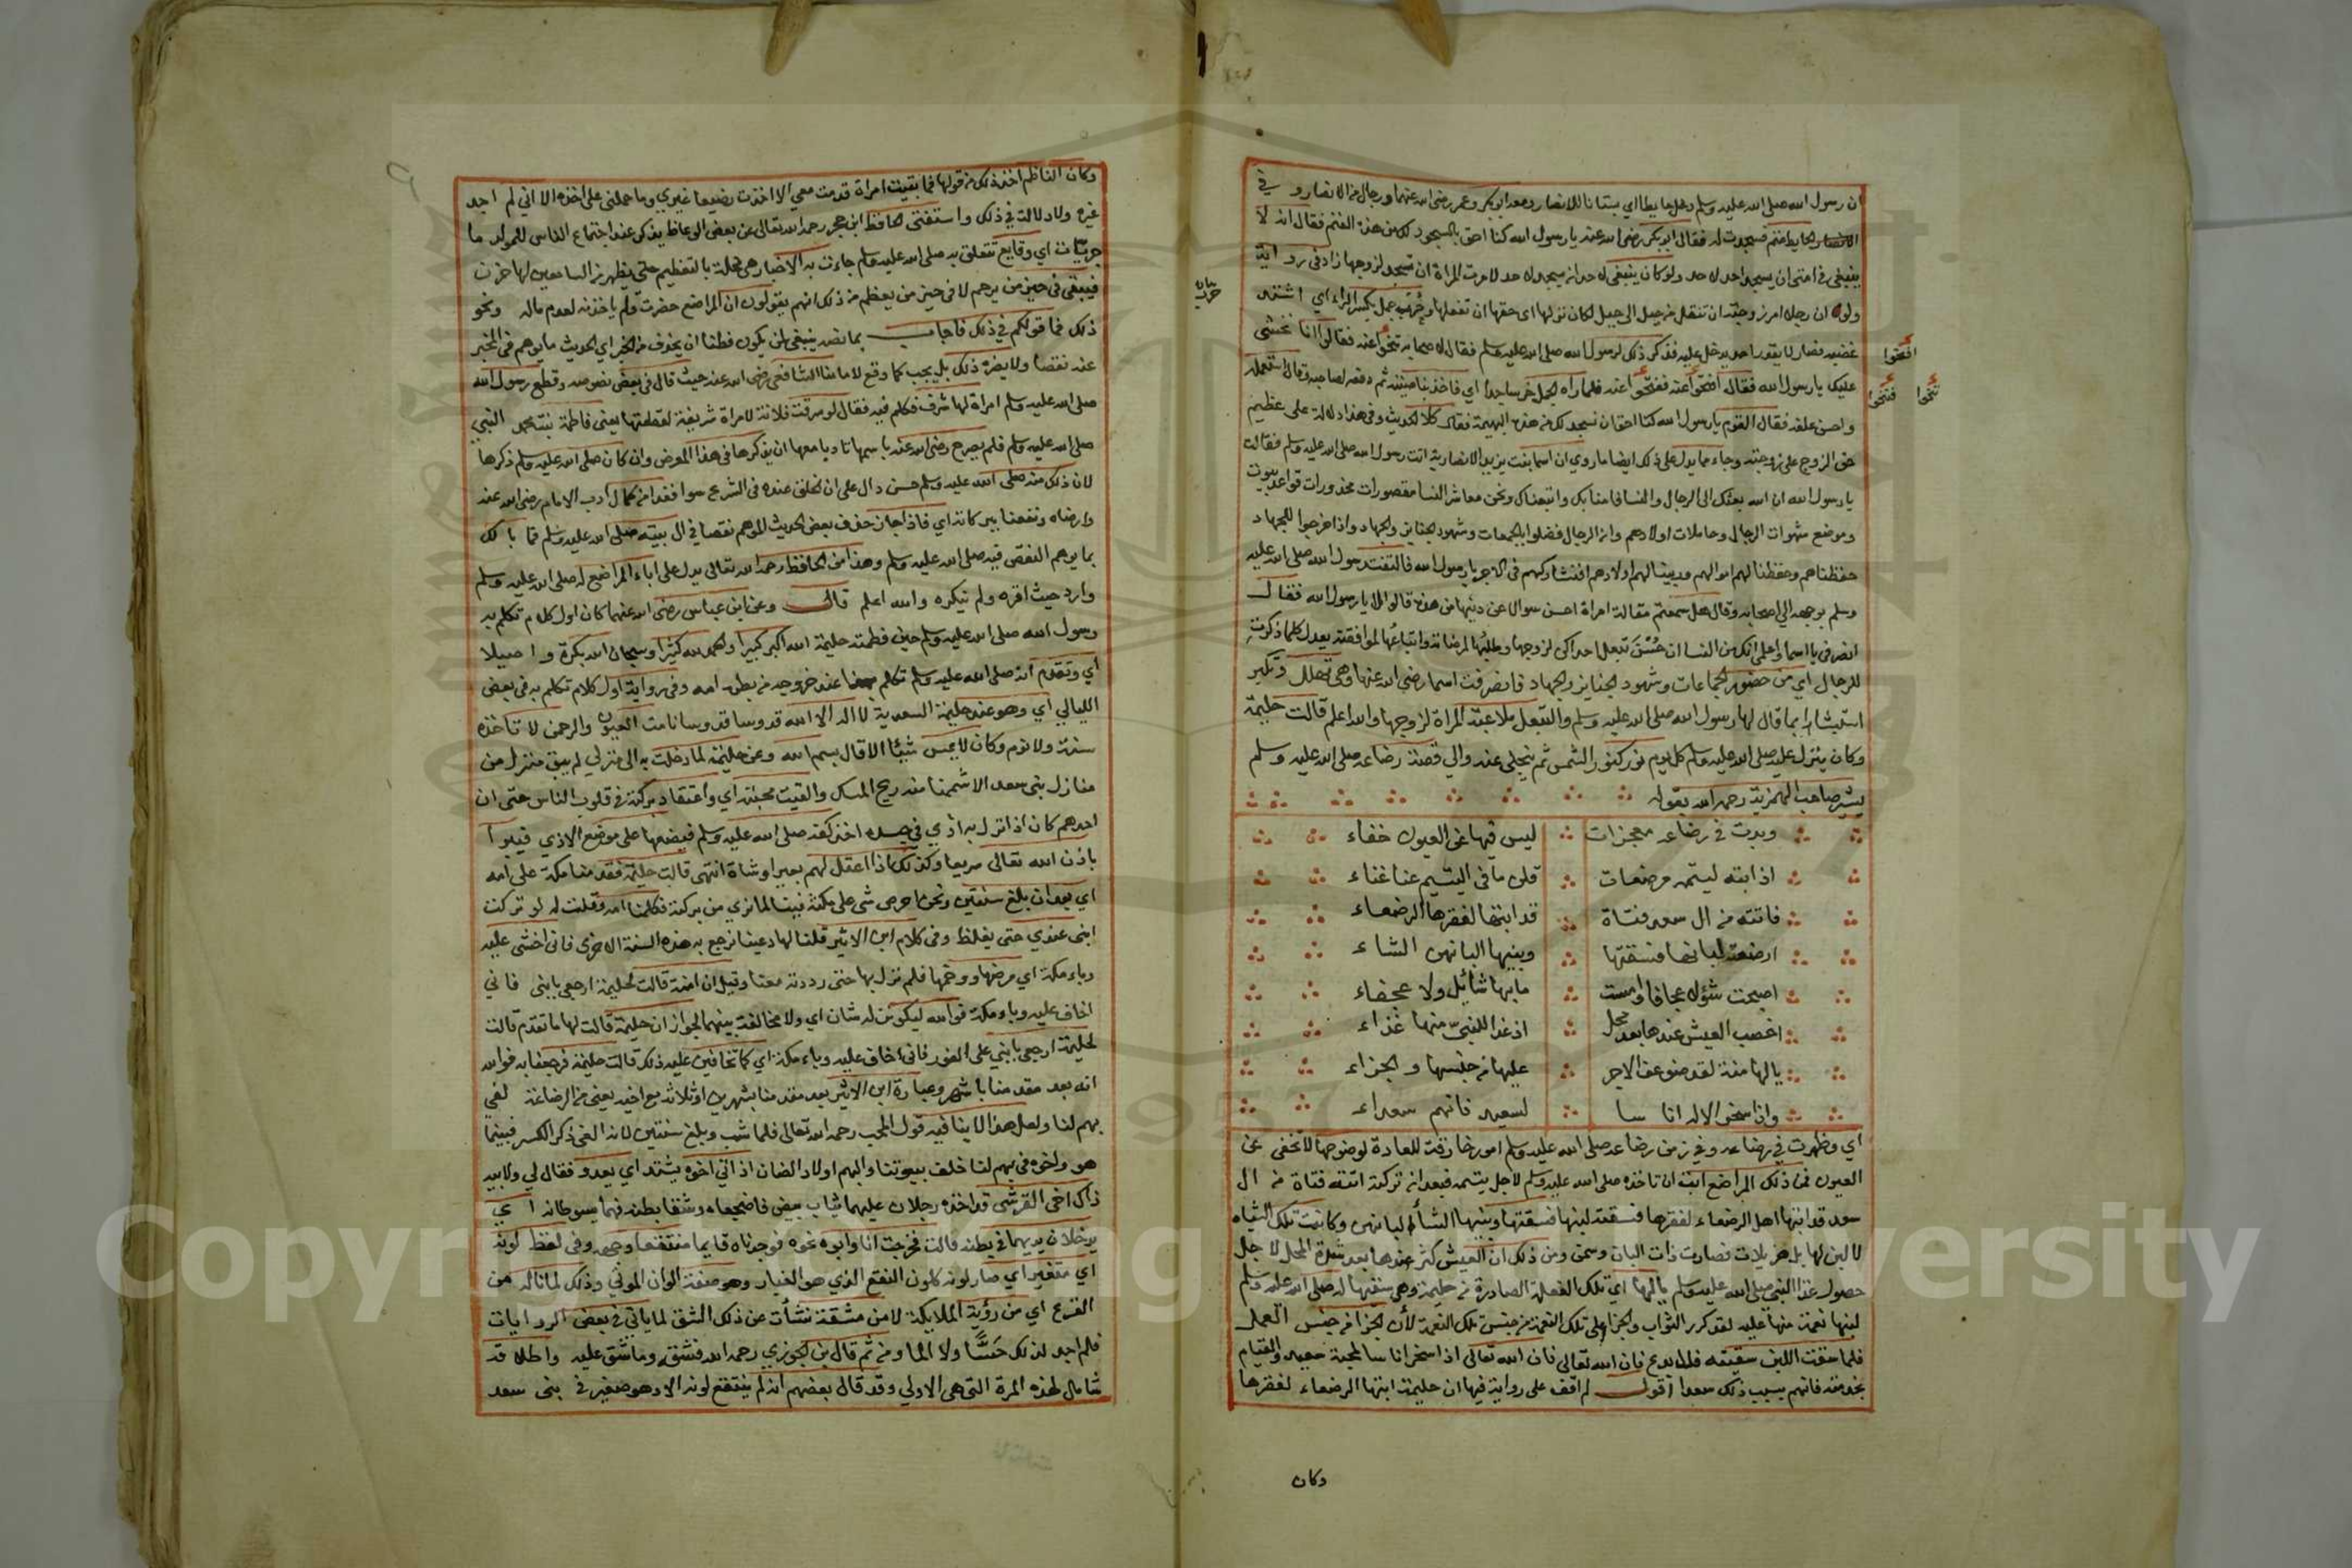 ان رسول الله صلى الله عليه وسلم دخل حايطا اي بستانا للانصار ومعه ابو بكر وعمر رضي الله عنهما ورجال من الانصار و في
الحايط غنم فسجدت له فقال ابو بكر رضي الله عنه يا رسول الله كنا احق بالسجود لك من هذه الغنم فقال انه لا
ينبغي في امتي ان يسجد احد لاحد ولو كان ينبغي لاحد ان يسجد لاحد لامرت المراة ان تسجد لزوجها زاد في رواية
ولو ان رجلا امر زوجته ان تنقل من جبل الى جبل لكان نولها اي حقها ان تفعل وحرب جمل بكسر الراء اي اشتد
غضبه فصار لا يقدر احد يدخل عليه فذكر ذلك لرسول الله صلى الله عليه وسلم فقال لاصحابه افتحوا عنه فقالوا انا نخشى
عليك يا رسول الله فقال افتحوا عنه ففتحوا عنه فلما راه الجمل خر ساجدا اي فاخذ بناصيته ثم دفعه لصاحبه وقال استعمله
واحسن علفه فقال القوم يا رسول الله كنا احق ان نسجد لك من هذه البهيمة فقال كلا الحديث وفي هذا دلالة على عظيم
حق الزوج على زوجته وجاء مما يدل على ذلك ايضا ما روي ان اسما بنت يزيد الانصارية اتت رسول الله صلى الله عليه وسلم فقالت
يا رسول الله ان الله بعثك الى الرجال والنسا فامنا بك واتبعناك ونحن معاشر النسا مقصورات مخدورات قواعد بيوت
وموضع شهوات الرجال وحاملات اولادهم وان الرجال فضلوا بالجمعات وشهود الجنايز والجهاد واذا خرجوا للجهاد
حفظنا لهم اموالهم وربينا لهم اولادهم افنشاركهم في الاجر يا رسول الله فالتفت رسول الله صلى الله عليه
وسلم بوجهه الى اصحابه وقال هل سمعتم مقالة امراة احسن سوالا عن دينها من هذه قالوا لا يا رسول الله فقال
انصرفي يا اسما واعلمي انك من النسا ان حسن تبعل احداكن لزوجها وطلبها لمرضاته واتباعها لموافقته يعدل كلما ذكرت
للرجال اي من حضور الجماعات وشهود الجنايز والجهاد فانصرفت اسما رضي الله عنها وهي تهلل وتكبر
استبشارا بما قال لها رسول الله صلى الله عليه وسلم والتبعل ملاعبة المراة لزوجها والله اعلم قالت حليمة
وكان ينزل عليه صلى الله عليه وسلم كل يوم نور كنور الشمس ثم ينجلي عنه والى قصة رضاعه صلى الله عليه وسلم
يشير صاحب الهمزية رحمه الله بقوله
وبدت في رضاعه معجزات ليس فيها عن العيون خفاء
اذ ابته ليتمه مرضعات قلن ما في اليتيم عنا غناء
فاتته من ال سعد فتاة قد ابتها لفقرها الرضعاء
ارضعته لبانها فسقتها وبنيها البانهن الشاء
اصبحت شولا عجافا وامست ما بها شايل ولا عجفاء
اخصب العيش عندها بعد محل اذ غدا للنبي منها غذاء
يا لها منة لقد ضوعف الاجر عليها من جنسها والجزاء
واذا سخر الاله اناسا لسعيد فانهم سعداء
اي وظهرت في رضاعه وفي زمن رضاعه صلى الله عليه وسلم امور خارقة للعادة لوضوحها لا تخفى عن
العيون فمن ذلك المراضع ابته ان تاخذه صلى الله عليه وسلم لاجل يتمه فبعد ان تركنه اتته فتاة من ال
سعد قد ابتها اهل الرضعاء لفقرها فسقته لبنها فسقتها وبنيها الشاء البانهن وكانت تلك الشياه
لا لبن لها بل هزيلات فصارت ذات البان وسمن ومن ذلك ان العيش كثر عندها بعد شدة المحل لاجل
حصول غذاء النبي صلى الله عليه وسلم يا لها اي تلك الفعلة الصادرة من حليمة وهي سقيها له صلى الله عليه وسلم
لبنها نعمة منها عليه لقد كرر الثواب والجزاء على تلك النعمة من جنس تلك النعمة لان الجزا من جنس العمل
فلما سقت اللبن سقيته فلا بدع فان الله تعالى اذا سخر اناسا لمحبة سعيد والقيام
بخدمته فانهم بسبب ذلك سعدا اقول لم اقف على رواية فيها ان حليمة ابتها الرضعاء لفقرها
وكان
افتحوا
فتحوا
وكان الناظم اخذ ذلك من قولها فما بقيت امراة قدمت معي الا اخذت رضيعا غيري وما حملني على اخذه الا اني لم اجد
غيره ولا دلالة في ذلك واستفتي الحافظ ابن حجر رحمه الله تعالى عن بعض الوعاظ يذكر عند اجتماع الناس للمولد ما
جريات اي وقايع تتعلق به صلى الله عليه وسلم جاءت به الاخبار هي مخلة بالتعظيم حتى يظهر من السامعين لها حزن
فيبقى في حيز من يرحم لا في حيز من يعظم من ذلك انهم يقولون ان المراضع حضرت ولم ياخذنه لعدم ماله ونحو
ذلك فما قولكم في ذلك فاجاب بما نصه ينبغي لمن يكون فطنا ان يحذف من الخبر اي الحديث ما يوهم في المخبر
عنه نقصا ولا يضره ذلك بل يجب كما وقع لامامنا الشافعي رضي الله عنه حيث قال في بعض نصوصه وقطع رسول الله
صلى الله عليه وسلم امراة لها شرف فكلم فيه فقال لو سرقت فلانة لامراة شريفة لقطعتها يعني فاطمة بنت محمد النبي
صلى الله عليه وسلم فلم يصرح رضي الله عنه باسمها تادبا معها ان يذكرها في هذا المعرض وان كان صلى الله عليه وسلم ذكرها
لان ذلك منه صلى الله عليه وسلم حسن دال على ان الخلق عنده في الشرع سوا فقد امن كمال ادب الامام رضي الله عنه
وارضاه ونفعنا ببركاته اي فاذا جاز حذف بعض الحديث الموهم نقصا في ال بيته صلى الله عليه وسلم فما بالك
بما يوهم النقص فيه صلى الله عليه وسلم وهذا من الحافظ رحمه الله تعالى يدل على اباء المراضع له صلى الله عليه وسلم
وارد حيث اقره ولم ينكره والله اعلم قال وعن ابن عباس رضي الله عنهما كان اول كلام تكلم به
رسول الله صلى الله عليه وسلم حين فطمته حليمة الله اكبر كبيرا والحمد لله كثيرا وسبحان الله بكرة واصيلا
اي وتقدم انه صلى الله عليه وسلم تكلم بهذا عند خروجه من بطن امه وفي رواية اول كلام تكلم به في بعض
الليالي اي وهو عند حليمة السعدية لا اله الا الله قدوسا قدوسا نامت العيون والرحمن لا تاخذه
سنة ولا نوم وكان لا يمس شيئا الا قال بسم الله وعن حليمة لما دخلت به الى منزلي لم يبق منزل من
منازل بني سعد الا شممنا منه ريح المسك والقيت محبته اي واعتقاد بركته في قلوب الناس حتى ان
احدهم كان اذا نزل به اذي في جسده اخذ كفه صلى الله عليه وسلم فيضعها على موضع الاذي فيبرا
باذن الله تعالى سريعا وكذلك اذا اعتل لهم بعيرا او شاة انتهى قالت حليمة فقدمنا مكة على امه
اي بعد ان بلغ سنتين ونحن احرص شي على مكثه فينا لما نري من بركته فكلمنا امه وقلت له لو تركت
ابني عندي حتى يغلظ وفي كلام ابن الاثير قلنا لها دعينا نرجع به هذه السنة الاخرى فاني اخشى عليه
وباء مكة اي مرضها ووخمها فلم نزل بها حتى ردته معنا وقيل ان امنة قالت لحليمة ارجعي بابني فاني
اخاف عليه وباء مكة فوالله ليكونن له شان اي ولا مخالفة بينهما لجواز ان حليمة قالت لها ما تقدم قالت
لحليمة ارجعي بابني على الفور فاني اخاف عليه وباء مكة اي كما تخافين عليه ذلك قالت حليمة فرجعنا به فوالله
انه بعد مقدمنا باشهر وعبارة ابن الاثير بعد مقدمنا بشهرين او ثلاثة مع اخيه يعني من الرضاعة لفي
بهم لنا ولعل هذا لا ينافيه قول المحب رحمه الله تعالى فلما شب وبلغ سنتين لانه الغى ذكر الكسر فبينما
هو واخوه في بهم لنا خلف بيوتنا والبهم اولاد الضان اذ اتي اخوه يشتد اي يعدو فقال لي ولابيه
ذاك اخي القرشي قد اخذه رجلان عليهما ثياب بيض فاضجعاه وشقا بطنه فهما يسوطانه اي
يدخلان يديهما في بطنه قالت فخرجت انا وابوه نحوه فوجدناه قايما منتقعا وجهه وفي لفظ لونه
اي متغير اي صار لونه كلون النقع الذي هو الغبار وهو صفة الوان الموتي وذلك لما ناله من
الفزع اي من رؤية الملايكة لا من مشقة نشات عن ذلك الشق لما ياتي في بعض الروايات
فلم اجد لذلك حسا ولا الما ومن ثم قال ابن الجوزي رحمه الله فشق وما شق عليه واطلاقه
شامل لهذه المرة التي هي الاولي وقد قال بعضهم انه لم ينتقع لونه الا وهو صغير في بني سعد
Copyright © King Saud University